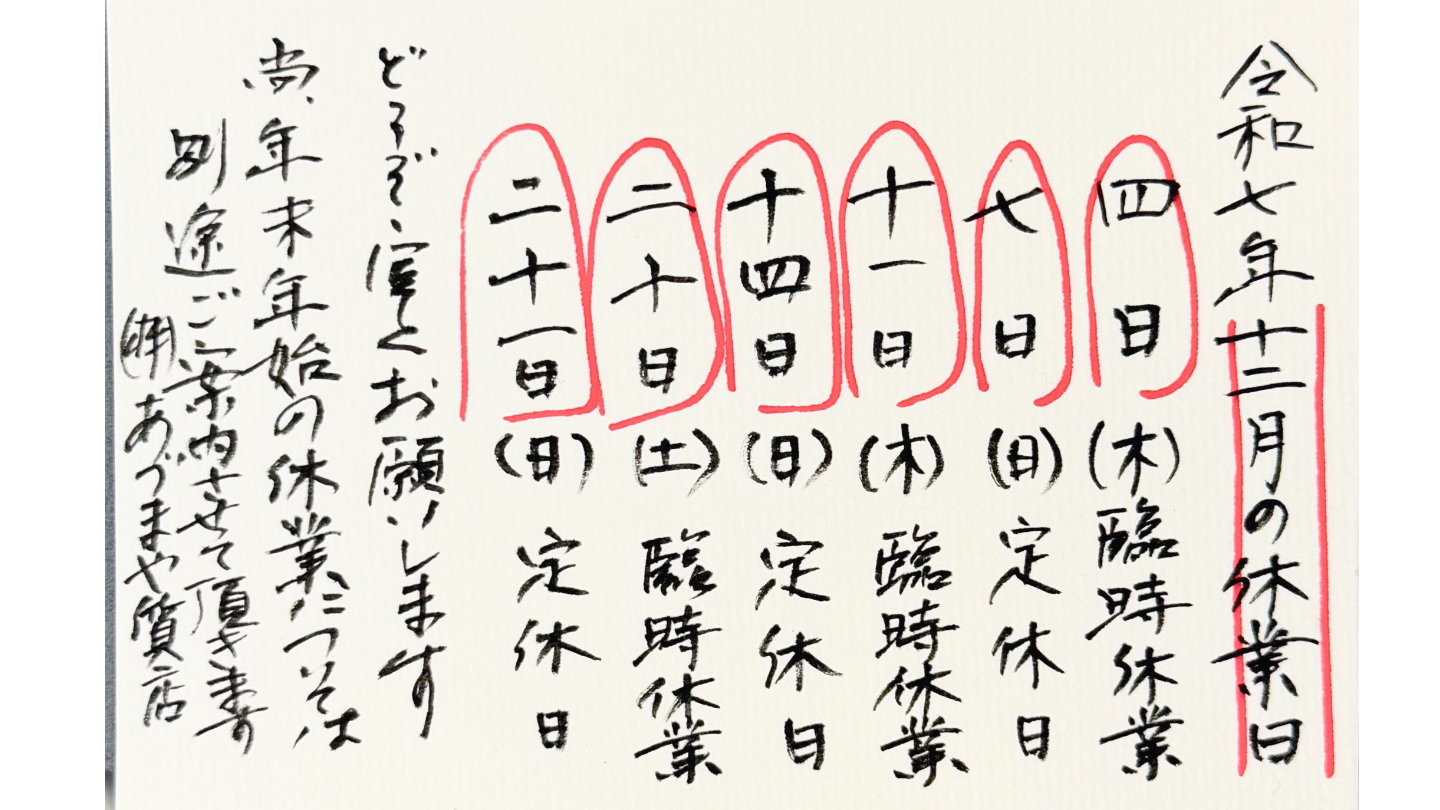 令和七年十二月の休業日
四日(木)臨時休業
七日(日)定休日
十一日(木)臨時休業
十四日(日)定休日
二十日(土)臨時休業
二十一日(日)定休日
どうぞ、宜しくお願いします
尚、年末年始の休業につきましては
別途ご案内させて頂きます
(有)あづまや質店